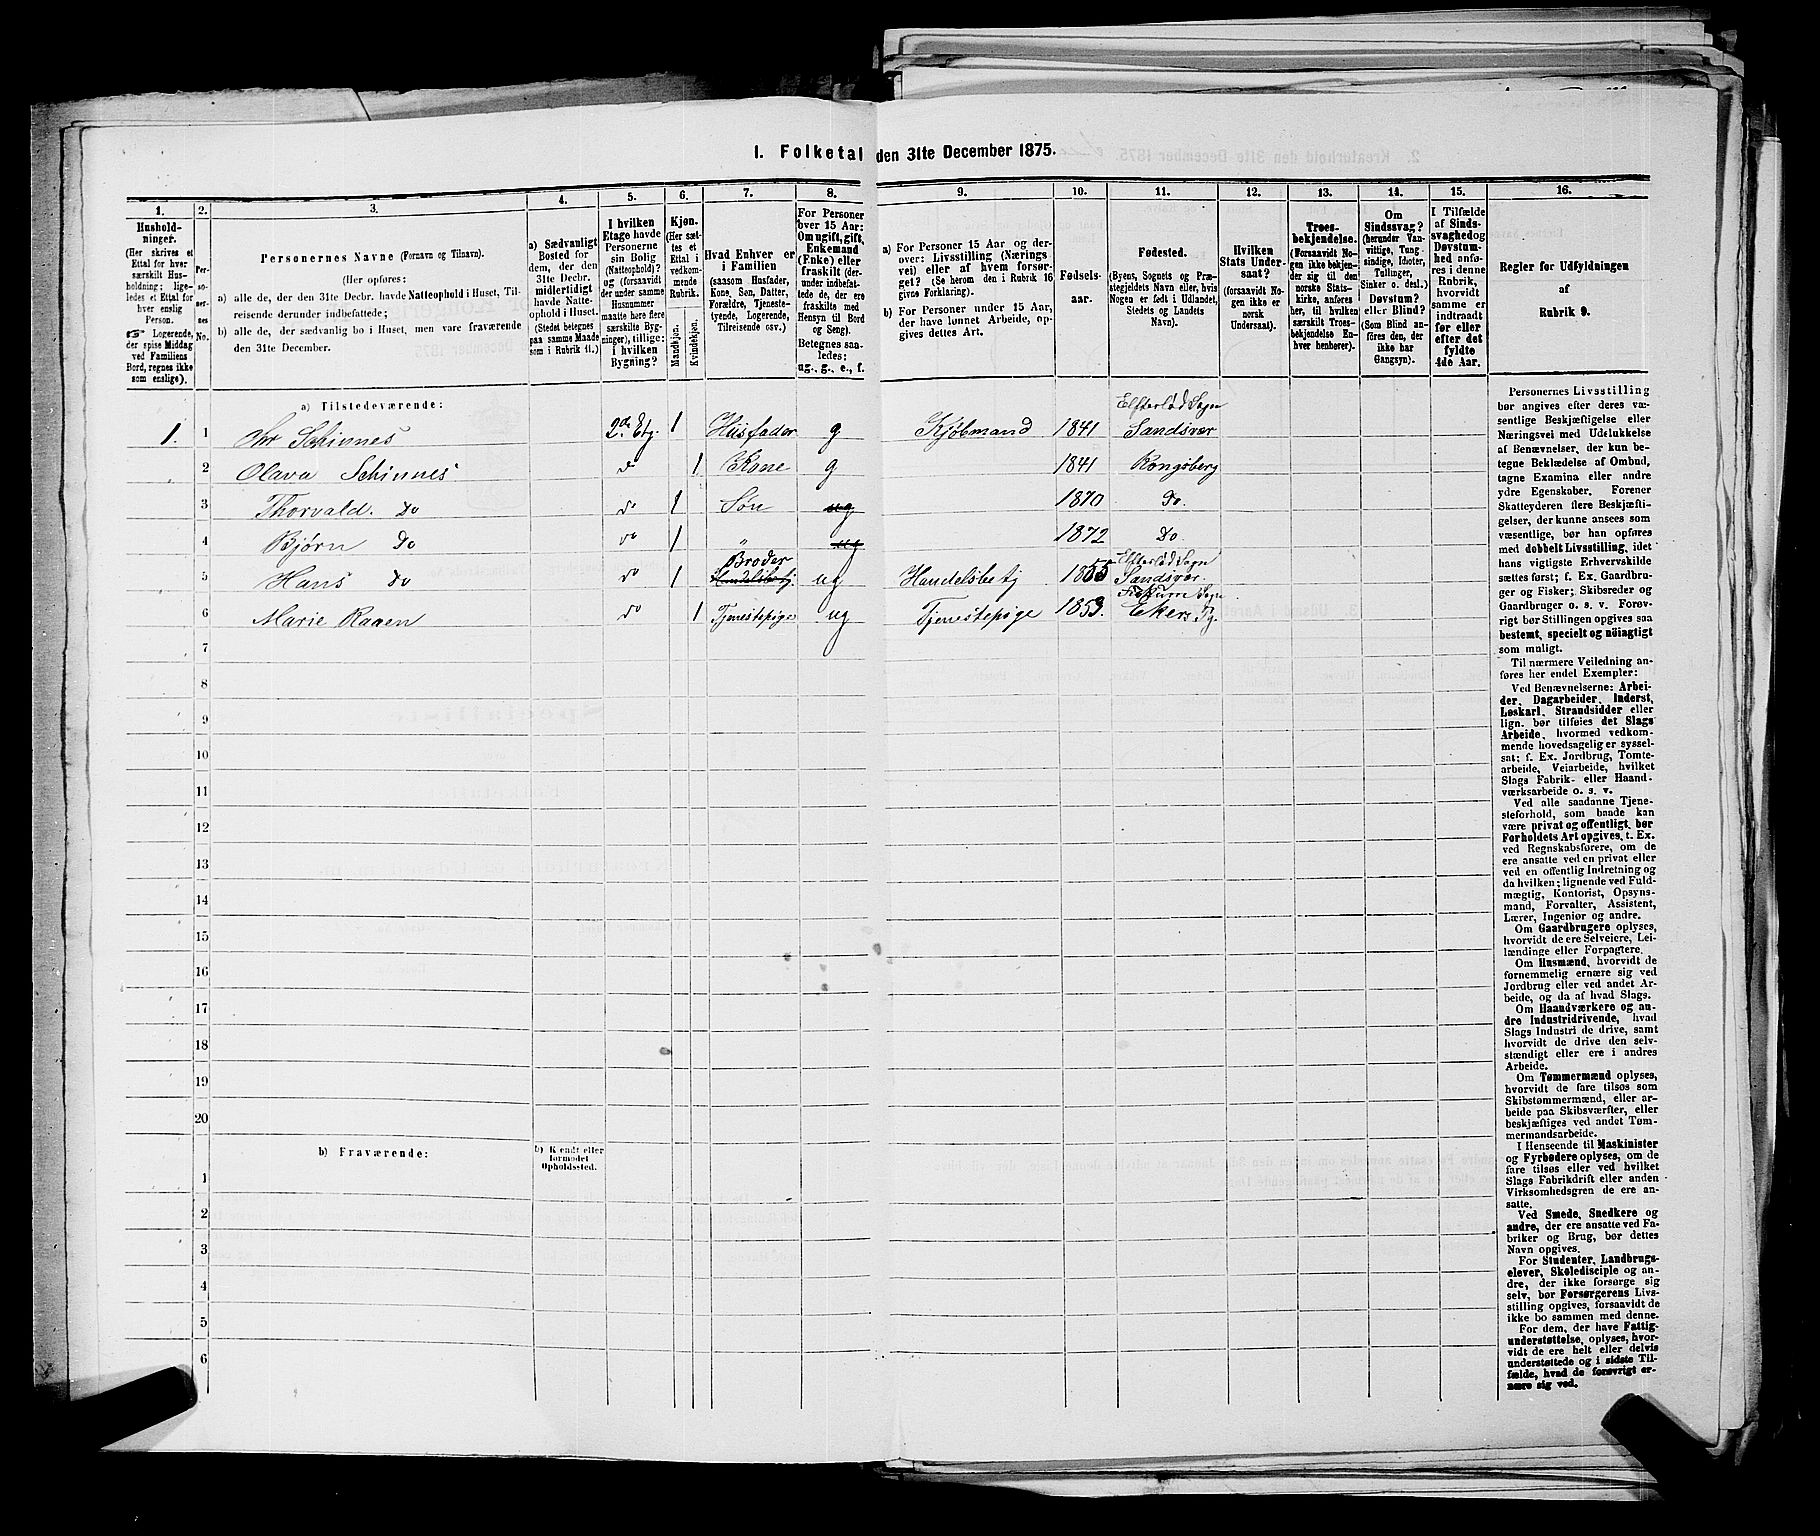 1. Folketal den 31te December 1875.
1. 2. 3. 4. 5. 6. 7. 8. 9. 10. 11. 12. 13. 14. 15. 16.
Hushold-
ninger.
(Her skrives et
Ettal for hver
særskilt Hus-
holdning; lige-
ledes et Ettal for
hver enslig
Person.
☞ Logerende,
der spise Middag
ved Familiens
Bord, regnes ikke
som enslige).
Per-
so-
ner-
nes
No.
Personernes Navne (Fornavn og Tilnavn).
(Her opføres:
a) alle de, der den 31te Decbr. havde Natteophold i Huset, Til-
reisende derunder indbefattede;
b) alle de, der sædvanlig bo i Huset, men vare fraværende
den 31te December.
a) Sædvanligt
Bosted for
dem, der den
31te Decbr.
midlertidigt
havde Natte-
ophold i Huset.
(Stedet betegnes
paa samme Maade
som i Rubrik 11.)
I hvilken
Etage havde
Personerne
sin Bolig
(Natteophold)?
og (forsaavidt
der under samme
Husnummer
maatte høre flere
særskilte Byg-
ninger), tillige:
I hvilken
Bygning?
Kjøn.
(Her sæt-
tes et
Ettal i
vedkom-
mende
Rubrik.
Mandkjøn.
Kvindekjøn.
Hvad Enhver er
i Familien
(saasom Husfader,
Kone, Søn, Datter,
Forældre, Tjeneste-
tyende, Logerende,
Tilreisende osv.)
For Personer
over 15 Aar:
Om ugift, gift,
Enkemand
(Enke) eller
fraskilt (der-
under indbefat-
tede de, der ere
fraskilte med
Hensyn til Bord
og Seng).
Betegnes saa-
ledes:
ug., g., e., f.
a) For Personer 15 Aar og der-
over: Livsstilling (Nærings-
vei) eller af hvem forsør-
get? (Se herom den i Rubrik 16
givne Forklaring).
b) For Personer under 15 Aar,
der have lønnet Arbeide, op-
gives dettes Art.
Fødsels-
aar.
Fødested.
(Byens, Sognets og Præ-
stegjeldets Navn eller, hvis
Nogen er født i Udlandet,
Stedets og Landets
Navn).
Hvilken
Stats Under-
saat?
(forsaavidt No-
gen ikke er
norsk
Undersaat).
Troes-
bekjendelse.
(Forsaavidt No-
gen ikke bekjen-
der sig til den
norske Stats-
kirke, anføres
her, til hvilken
særskilt Troes-
bekjendelse En-
hver henhører).
Om
Sindssvag?
(herunder Van-
vittige, Tung-
sindige, Idioter,
Tullinger,
Sinker o. desl.)
Døvstum?
eller Blind?
(Som Blind an-
føres den, der
ikke har
Gangsyn).
I Tilfælde
af Sinds-
svaghed og
Døvstum-
hed anfø-
res i denne
Rubrik,
hvorvidt
samme er
indtraadt
før eller
efter det
fyldte
4de Aar.
Regler for Udfyldningen
af
Rubrik 9.
a) Tilstedeværende:
1. 1 Chr Schinnes 2de Etg. 1 Husfader g Kjøbmand 1841 Efterlød Sogn Sandsvær
2 Olava Schinnes do 1 Kone g 1841 Kongsberg
3 Thorvald. Do do 1 Søn ug 1870 Do.
4 Bjørn Do do 1 " ug 1872 Do.
5 Hans Do do 1 Broder Handelsbetj: ug Handelsbetj 1855 Efterlød Sogn Sandsvær.
6 Marie Raaen do 1 Tjenestepige ug Tjenestepige 1853. Fiskum Sogn. Ekers Pg.
7
8
9
10
11
12
13
14
15
16
17
18
19
20
b) Fraværende:
b) Kjendt eller
formodet
Opholdssted.
1
2
3
4
5
6
Personernes Livsstilling
bør angives efter deres væ-
sentlige Beskjæftigelse eller
Næringsvei med Udelukkelse
af Benævnelser, der kun be-
tegne Beklædelse af Ombud,
tagne Examina eller andre
ydre Egenskaber. Forener
Skatteyderen flere Beskjæfti-
gelser, der kunne ansees som
væsentlige, bør han opføres
med dobbelt Livsstilling, idet
hans vigtigste Erhvervskilde
sættes først; f. Ex. Gaardbru-
ger og Fisker; Skibsreder og
Gaardbruger o. s. v. Forøv-
rigt bør Stillingen opgives saa
bestemt, specielt og nøiagtigt
som muligt.
Til nærmere Veiledning an-
føres her endel Exempler:
Ved Benævnelserne: Arbei-
der, Dagarbeider, Inderst,
Løskarl, Strandsidder eller
lign. bør tilføies det Slags
Arbeide, hvormed vedkom-
mende hovedsagelig er syssel-
sat; f. Ex. Jordbrug, Tomte-
arbeide, Veiarbeide, hvilket
Slags Fabrik- eller Haand-
værksarbeide o. s. v.
Ved alle saadanne Tjene-
steforhold, som baade kan
være privat og offentligt, bør
Forholdets Art opgives, t. Ex.
ved Regnskabsførere, om de
ere ansatte ved en privat eller
ved en offentlig Indretning og
da hvilken; lignende ved Fuld-
mægtig, Kontorist, Opsyns-
mand, Forvalter, Assistent,
Lærer, Ingeniør og andre.
Om Gaardbrugere oplyses,
hvorvidt de ere Selveiere, Lei-
lændinge eller Forpagtere.
Om Husmænd, hvorvidt de
fornemmelig ernære sig ved
Jordbrug eller ved andet Ar-
beide, og da af hvad Slags.
Om Haandværkere og an-
dre Industridrivende, hvad
Slags Industri de drive, samt
hvorvidt de drive den selv-
stændigt eller ere i andres
Arbeide.
Om Tømmermænd oplyses,
hvorvidt de fare tilsøs som
Skibstømmermænd, eller ar-
beide paa Skibsværfter, eller
beskjæftiges ved andet Tøm-
mermandsarbeide.
I Henseende til Maskinister
og Fyrbødere oplyses, om de
fare tilsøs eller ved hvilket
Slags Fabrikdrift eller anden
Virksomhedsgren de ere an-
satte.
Ved Smede, Snedkere og
andre, der ere ansatte ved Fa-
briker og Brug, bør dettes
Navn opgives.
For Studenter, Landbrugs-
elever, Skoledisciple og an-
dre, der ikke forsørge sig
selv, bør Forsørgerens Livs-
stilling opgives, forsaavidt de
ikke bo sammen med denne.
For dem, der have Fattig-
understøttelse, oplyses, hvor-
vidt de ere helt eller delvis
understøttede og i sidste Til-
fælde, hvad de forøvrigt er-
nære sig ved.